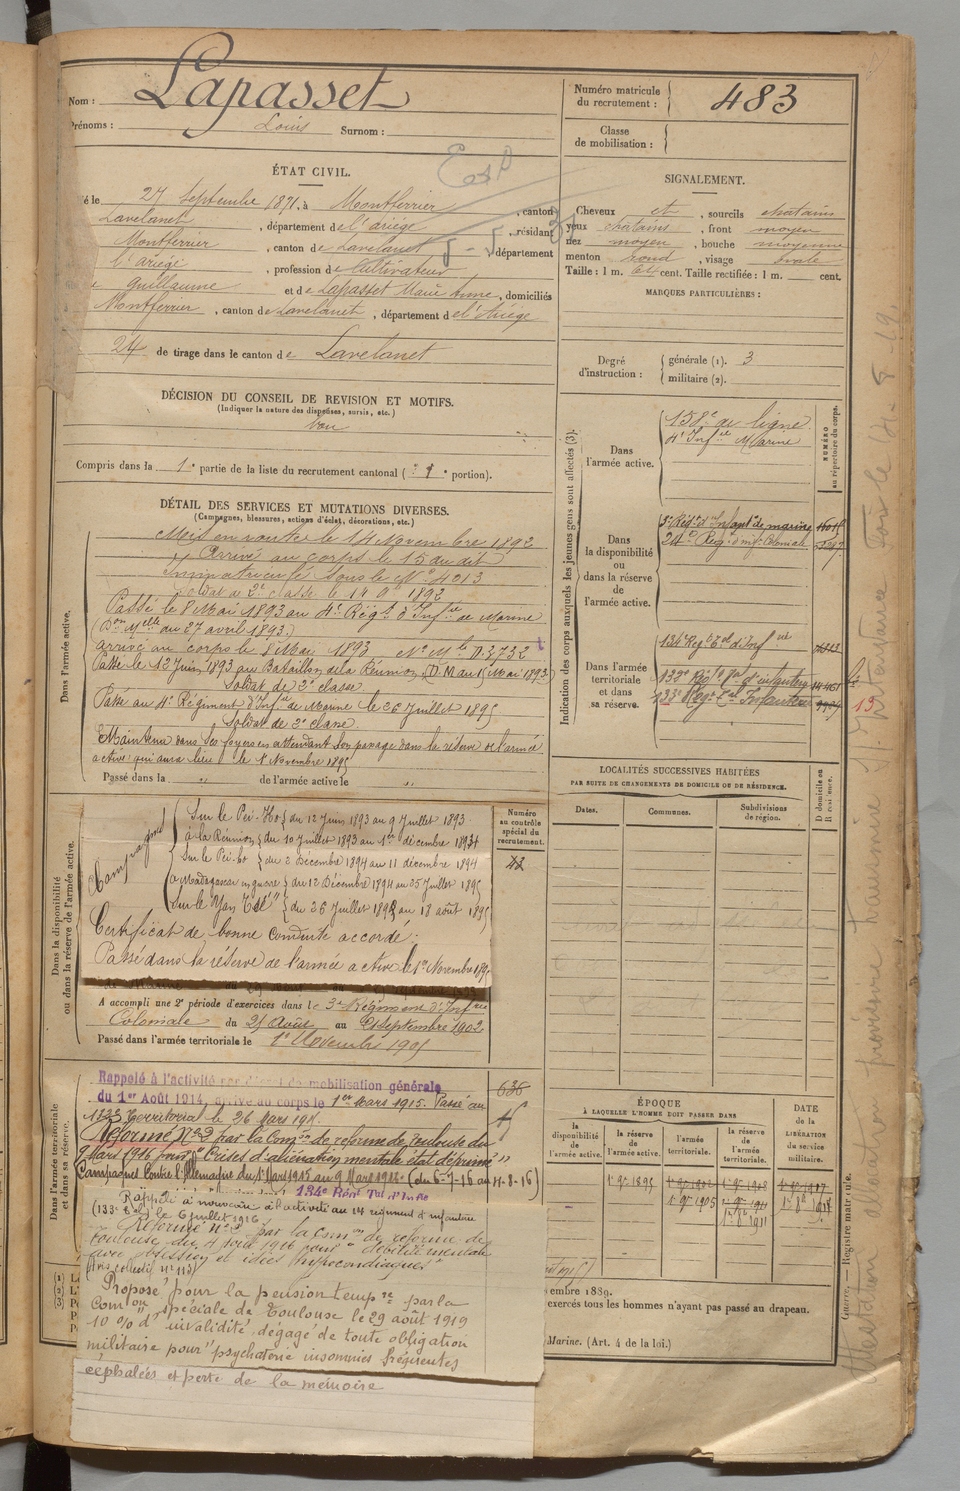 Nom : Lapasset
Prénoms : Louis Surnom :
Numéro matricule du recrutement : 483
Classe de mobilisation :
ÉTAT CIVIL.
Né le 27 Septembre 1871, à Montferrier, canton
Lavelanet, département de l'ariège, résidant
Montferrier, canton de Lavelanet département
l'ariège, profession de Cultivateur
guillaume et de Lapasset Marie Anne, domiciliés
Montferrier, canton de Lavelanet, département de l'Ariège
24 de tirage dans le canton de Lavelanet
DÉCISION DU CONSEIL DE REVISION ET MOTIFS.
(Indiquer la nature des dispenses, sursis, etc.)
bon
Compris dans la 1e partie de la liste du recrutement cantonal ( 1e portion).
DÉTAIL DES SERVICES ET MUTATIONS DIVERSES.
(Campagnes, blessures, actions d'éclat, décorations, etc.)
Dans l'armée active.
Mis en route le 14 Novembre 1892
Arrivé au corps le 15 du dit
Immatriculé sous le No 4013
Soldat de 2e classe le 14 9e 1892
Passé le 8 Mai 1893 au 4e Régt d'Infie de Marine
(Don Melle du 27 avril 1893.)
arrivé au corps le 8 Mai 1893 No Mle D.3732
Passé le 12 Juin 1893 au Bataillon de la Réunion (D. M du Mai 1893.)
Soldat de 2e classe
Passé au 4e Régiment d'Infie de Marine le 26 Juillet 1895
Soldat de 2e classe.
Maintenu dans ses foyers en attendant son passage dans la réserve de l'armée
active qui aura lieu le 1 Novembre 1895
Passé dans la " de l'armée active le "
Dans la disponibilité ou dans la réserve de l'armée active.
Campagnes
Sur le Pei-Ho du 12 Juin 1893 au 9 Juillet 1893
à la Réunion du 10 Juillet 1893 au 1er décembre 1894
Sur le Pei-ho du 2 Décembre 1894 au 11 décembre 1894
à Madagascar en guerre du 12 Décembre 1894 au 25 Juillet 1895
Sur le "Yan Tsé" du 26 Juillet 1895 au 18 août 1895
Certificat de bonne conduite accordé.
Passé dans la réserve de l'armée active le 1er Novembre 189
A accompli une 2e période d'exercices dans le 3e Régiment d'Infrie
Coloniale du 25 Août au 21 septembre 1902
Passé dans l'armée territoriale le 1er Novembre 1905
Numéro au contrôle spécial du recrutement.
43
Dans l'armée territoriale et dans sa réserve.
Rappelé à l'activité par décret de mobilisation générale
du 1er Août 1914, arrivé au corps le 1er Mars 1915. Passé au
133e territorial le 26 Mars 191
Réformé No 2 par la Comon de réforme de Toulouse du
9 Mars 1916 pour "Crises d'aliénation mentale état déprimé"
Campagne Contre l'Allemagne du 1 Mars 1915 au 9 Mars 1916 (du 6-7-16 au 4-8-16)
134e Régt Tal d'Infie
636
Rappelé à nouveau à l'activité au 14 régiment d'infanterie
(133e tal) le 6 juillet 1916
Réformé No 2 par la Comon de réforme de
Toulouse du 4 Août 1916 pour "débilité mentale
avec obsession et idées hypocondiaques"
(Avis collectif No 113)
Proposé pour la pension tempre par la
Comon spéciale de Toulouse le 29 août 1919
10 % d'invalidité, dégagé de toute obligation
militaire pour "psychaténie insomnies fréquentes
céphalées et perte de la mémoire
SIGNALEMENT.
Cheveux et, sourcils chatains
yeux chatains, front moyen
nez moyen, bouche moyenne
menton rond, visage ovale
Taille : 1 m. 64 cent. Taille rectifiée : 1 m. cent.
MARQUES PARTICULIÈRES :
Degré d'instruction : générale (1). 3
militaire (2).
Indication des corps auxquels les jeunes gens sont affectés (3).
NUMÉRO au répertoire du corps.
Dans l'armée active.
158e de ligne
4e Infie Marine
Dans la disponibilité ou dans la réserve de l'armée active.
3e Régt d'Infant de marine
24e Regt d'inf Coloniale
Dans l'armée territoriale et dans sa réserve.
134e Régt tal d'Infrie
133e Régt Tal d'infanterie
133e Régt Tal Infanterie
13
LOCALITÉS SUCCESSIVES HABITÉES
PAR SUITE DE CHANGEMENTS DE DOMICILE OU DE RÉSIDENCE.
Dates. Communes. Subdivisions de région. D domicile ou R résidence.
ÉPOQUE
À LAQUELLE L'HOMME DOIT PASSER DANS
la disponibilité de l'armée active. la réserve de l'armée active. l'armée territoriale. la réserve de l'armée territoriale.
DATE de la LIBÉRATION du service militaire.
1er 9e 1895
1er 9e 1905 1er 9e 1911
1er 8e 1911
embre 1889.
exercés tous les hommes n'ayant pas passé au drapeau.
Marine. (Art. 4 de la loi.)
Guerre. — Registre matricule.